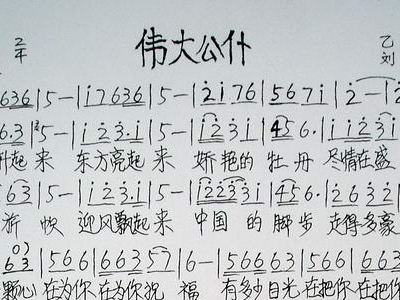 伟大公仆
636|5—|i̇7636|5—|2̇i̇76|567i̇|2̇—|
6·3|5—|i̇2̇3̇·i̇|5—|i̇2̇3̇i̇|456·|i̇i̇2̇3̇i̇
升起 来 东方亮起 来 娇艳的 牡 丹 尽情在盛
63|5—|i̇2̇3̇·i̇|5—|i̇2̇2̇3̇3̇i̇|456·|2632
迎风飘起来 中国 的 脚 步 走得多豪
63|566|66357|6—|56663|566|663
颗心 在为你 在为你祝 福 有多少目光 在把你 在把你